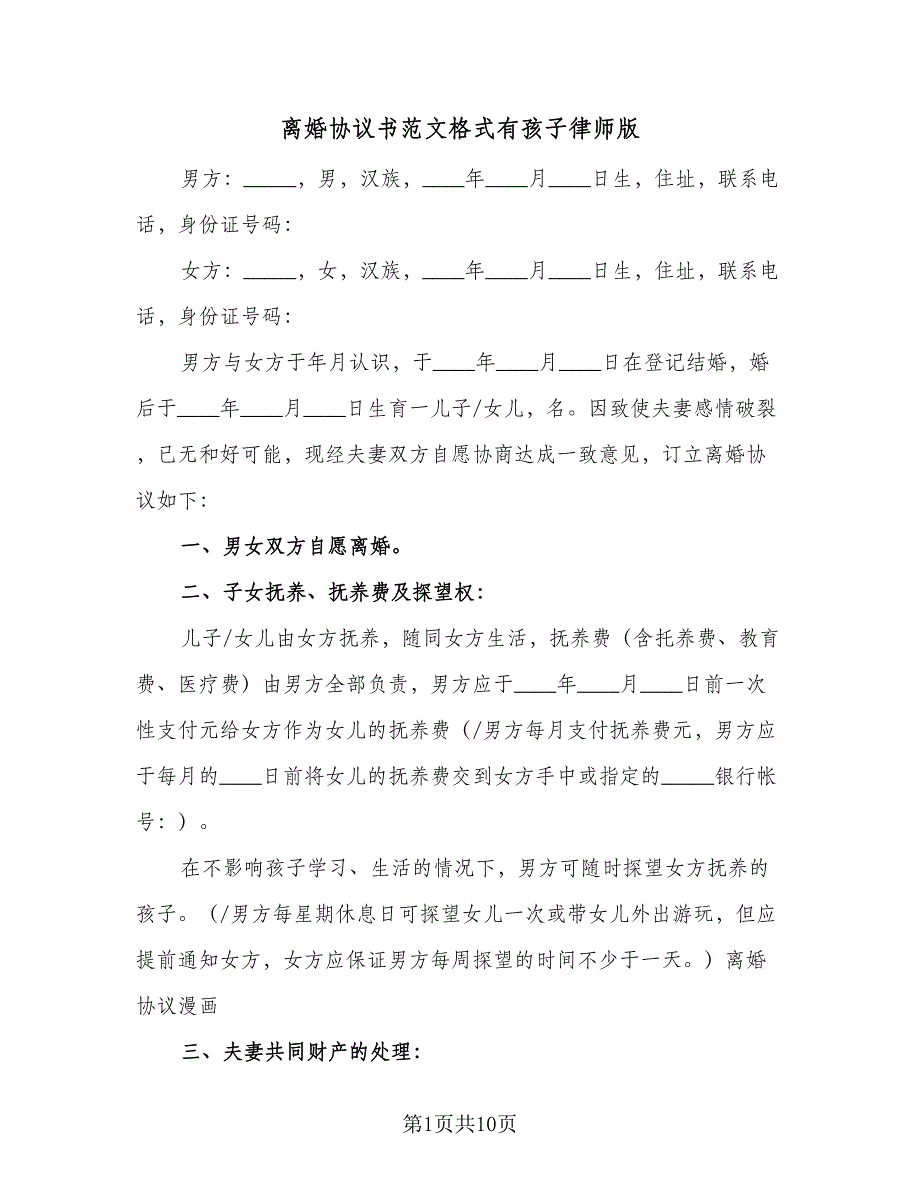 离婚协议书范文格式有孩子律师版
男方：_____，男，汉族，____年____月____日生，住址，联系电
话，身份证号码：
女方：_____，女，汉族，____年____月____日生，住址，联系电
话，身份证号码：
男方与女方于年月认识，于____年____月____日在登记结婚，婚
后于____年____月____日生育一儿子/女儿，名。因致使夫妻感情破裂
，已无和好可能，现经夫妻双方自愿协商达成一致意见，订立离婚协
议如下：
一、男女双方自愿离婚。
二、子女抚养、抚养费及探望权：
儿子/女儿由女方抚养，随同女方生活，抚养费（含托养费、教育
费、医疗费）由男方全部负责，男方应于____年____月____日前一次
性支付元给女方作为女儿的抚养费（/男方每月支付抚养费元，男方应
于每月的____日前将女儿的抚养费交到女方手中或指定的_____银行帐
号：）。
在不影响孩子学习、生活的情况下，男方可随时探望女方抚养的
孩子。（/男方每星期休息日可探望女儿一次或带女儿外出游玩，但应
提前通知女方，女方应保证男方每周探望的时间不少于一天。）离婚
协议漫画
三、夫妻共同财产的处理：
第1页共10页